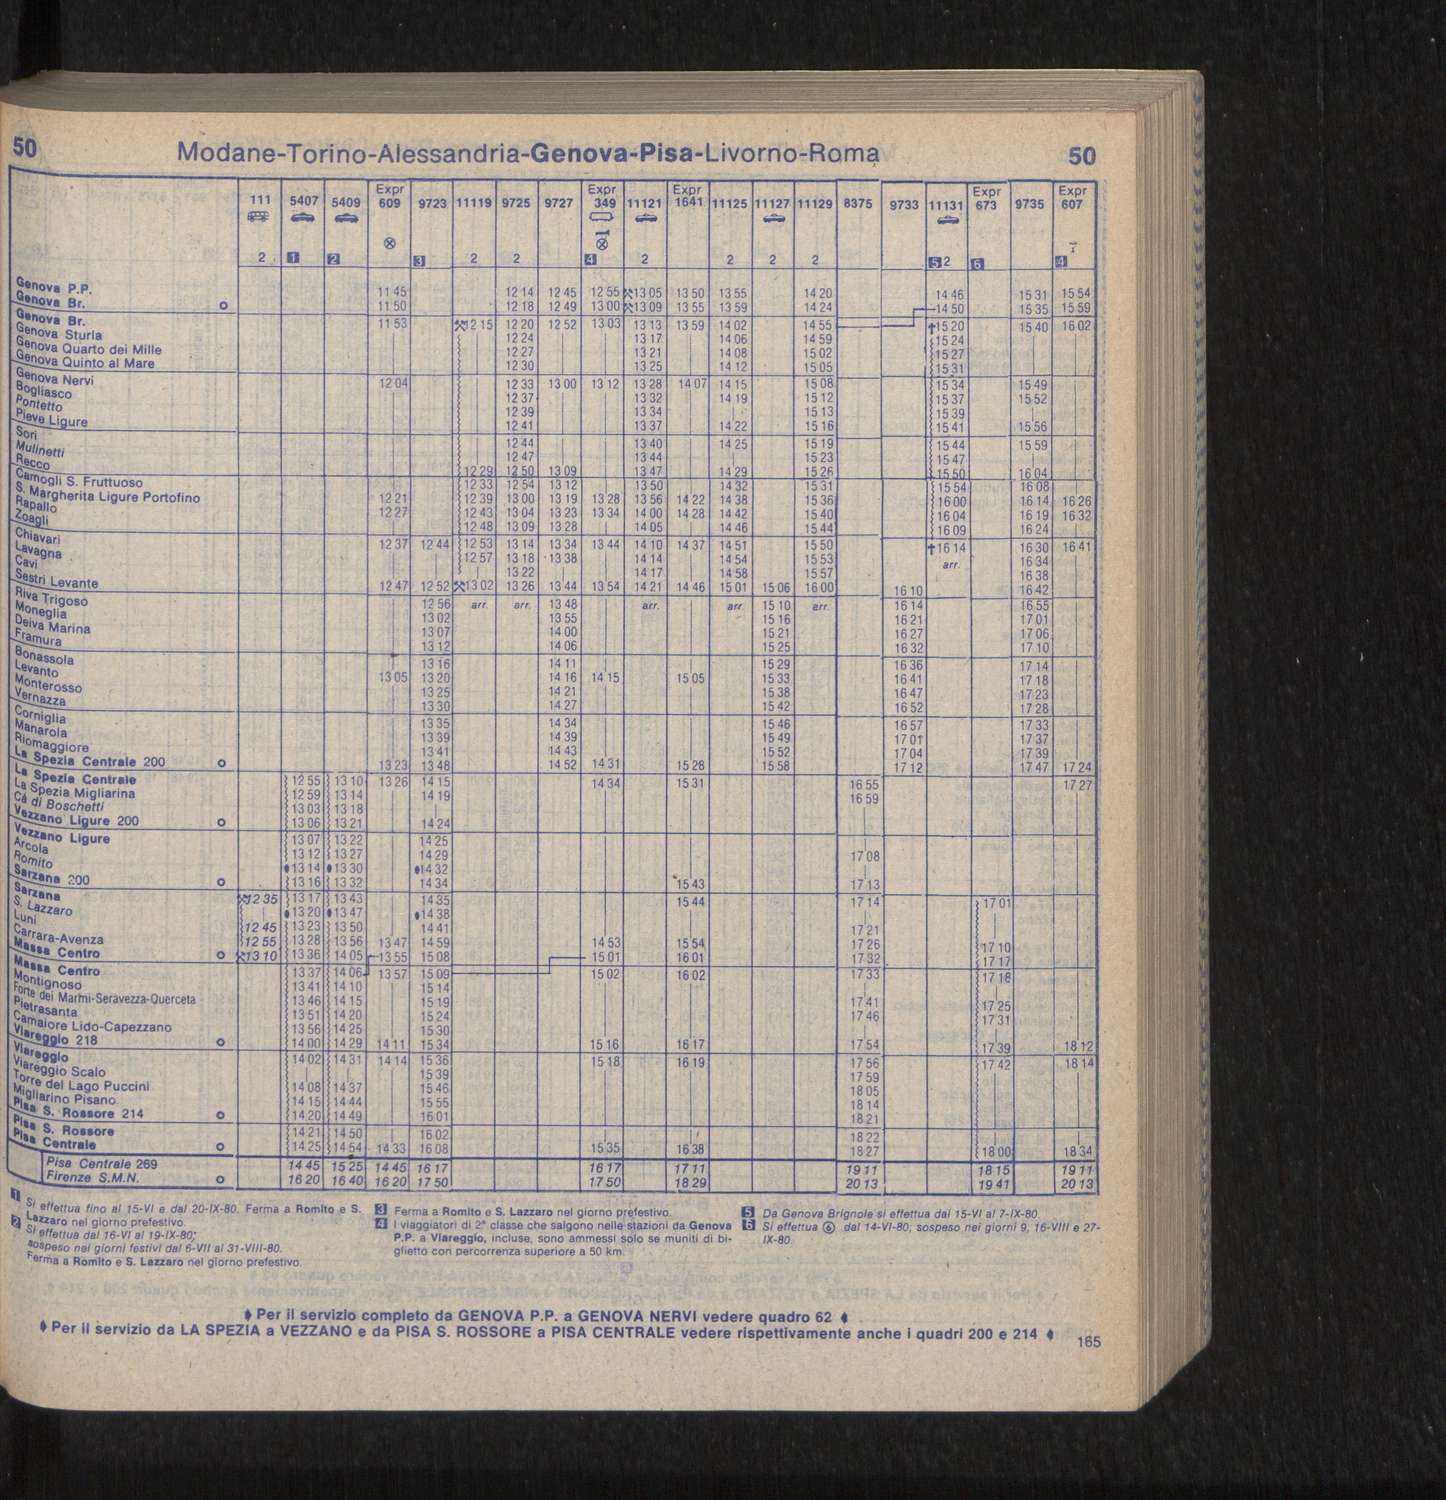 50 Modane-Torino-Alessandria-Genova-Pisa-Livorno-Roma 50
Expr Expr Expr Expr Expr
111 5407 5409 609 9723 11119 9725 9727 349 11121 1641 11125 11127 11129 8375 9733 11131 673 9735 607
2 1 2 3 2 2 4 2 2 2 2 5 2 6 4
Genova P.P. 11 45 12 14 12 45 12 55 13 05 13 50 13 55 14 20 14 46 15 31 15 54
Genova Br. 11 50 12 18 12 49 13 00 13 09 13 55 13 59 14 24 14 50 15 35 15 59
Genova Br. 11 53 12 15 12 20 12 52 13 03 13 13 13 59 14 02 14 55 15 20 15 40 16 02
Genova Sturla 12 24 13 17 14 06 14 59 15 24
Genova Quarto dei Mille 12 27 13 21 14 08 15 02 15 27
Genova Quinto al Mare 12 30 13 25 14 12 15 05 15 31
Genova Nervi 12 04 12 33 13 00 13 12 13 28 14 07 14 15 15 08 15 34 15 49
Bogliasco 12 37 13 32 14 19 15 12 15 37 15 52
Pontetto 12 39 13 34 15 13 15 39
Pieve Ligure 12 41 13 37 14 22 15 16 15 41 15 56
Sori 12 44 13 40 14 25 15 19 15 44 15 59
Mulinetti 12 47 13 44 15 23 15 47
Recco 12 29 12 50 13 09 13 47 14 29 15 26 15 50 16 04
Camogli S. Fruttuoso 12 33 12 54 13 12 13 50 14 32 15 31 15 54 16 08
S. Margherita Ligure Portofino 12 21 12 39 13 00 13 19 13 28 13 56 14 22 14 38 15 36 16 00 16 14 16 26
Rapallo 12 27 12 43 13 04 13 23 13 34 14 00 14 28 14 42 15 40 16 04 16 19 16 32
Zoagli 12 48 13 09 13 28 14 05 14 46 15 44 16 09 16 24
Chiavari 12 37 12 44 12 53 13 14 13 34 13 44 14 10 14 37 14 51 15 50 16 14 16 30 16 41
Lavagna 12 57 13 18 13 38 14 14 14 54 15 53 arr. 16 34
Cavi 13 22 14 17 14 58 15 57 16 38
Sestri Levante 12 47 12 52 13 02 13 26 13 44 13 54 14 21 14 46 15 01 15 06 16 00 16 10 16 42
Riva Trigoso 12 56 arr. arr. 13 48 arr. arr. 15 10 arr. 16 14 16 55
Moneglia 13 02 13 55 15 16 16 21 17 01
Deiva Marina 13 07 14 00 15 21 16 27 17 06
Framura 13 12 14 06 15 25 16 32 17 10
Bonassola 13 16 14 11 15 29 16 36 17 14
Levanto 13 05 13 20 14 16 14 15 15 05 15 33 16 41 17 18
Monterosso 13 25 14 21 15 38 16 47 17 23
Vernazza 13 30 14 27 15 42 16 52 17 28
Corniglia 13 35 14 34 15 46 16 57 17 33
Manarola 13 39 14 39 15 49 17 01 17 37
Riomaggiore 13 41 14 43 15 52 17 04 17 39
La Spezia Centrale 200 13 23 13 48 14 52 14 31 15 26 15 58 17 12 17 47 17 24
La Spezia Centrale 12 55 13 10 13 26 14 15 14 34 15 31 16 55 17 27
La Spezia Migliarina 12 59 13 14 14 19 16 59
Cà di Boschetti 13 03 13 18
Vezzano Ligure 200 13 06 13 21 14 24
Vezzano Ligure 13 07 13 22 14 25
Arcola 13 12 13 27 14 29 17 08
Romito 13 14 13 30 14 32
Sarzana 200 13 16 13 32 14 34 15 43 17 13
Sarzana 12 35 13 17 13 43 14 35 15 44 17 14 17 01
S. Lazzaro 13 20 13 47 14 38
Luni 12 45 13 23 13 50 14 41 17 21
Carrara-Avenza 12 55 13 28 13 56 13 47 14 59 14 53 15 54 17 26 17 10
Massa Centro 13 10 13 36 14 05 13 55 15 08 15 01 16 01 17 32 17 17
Massa Centro 13 37 14 06 13 57 15 09 15 02 16 02 17 33 17 18
Montignoso 13 41 14 10 15 14
Forte dei Marmi-Seravezza-Querceta 13 46 14 15 15 19 17 41 17 25
Pietrasanta 13 51 14 20 15 24 17 46 17 31
Camaiore Lido-Capezzano 13 56 14 25 15 30
Viareggio 218 14 00 14 29 14 11 15 34 15 16 16 17 17 54 17 39 18 12
Viareggio 14 02 14 31 14 14 15 36 15 18 16 19 17 56 17 42 18 14
Viareggio Scalo 15 39 17 59
Torre del Lago Puccini 14 08 14 37 15 46 18 05
Migliarino Pisano 14 15 14 44 15 55 18 14
Pisa S. Rossore 214 14 20 14 49 16 01 18 21
Pisa S. Rossore 14 21 14 50 16 02 18 22
Pisa Centrale 14 25 14 54 14 33 16 08 15 35 16 38 18 27 18 00 18 34
Pisa Centrale 269 14 45 15 25 14 45 16 17 16 17 17 11 19 11 18 15 19 11
Firenze S.M.N. 16 20 16 40 16 20 17 50 17 50 18 29 20 13 19 41 20 13
1 Si effettua fino al 15-VI e dal 20-IX-80. Ferma a Romito e S.
Lazzaro nel giorno prefestivo.
2 Si effettua dal 16-VI al 19-IX-80;
sospeso nei giorni festivi dal 6-VII al 31-VIII-80.
Ferma a Romito e S. Lazzaro nel giorno prefestivo.
3 Ferma a Romito e S. Lazzaro nel giorno prefestivo.
4 I viaggiatori di 2ª classe che salgono nelle stazioni da Genova
P.P. a Viareggio, incluse, sono ammessi solo se muniti di bi-
glietto con percorrenza superiore a 50 km.
5 Da Genova Brignole si effettua dal 15-VI al 7-IX-80.
6 Si effettua ⑥ dal 14-VI-80; sospeso nei giorni 9, 16-VIII e 27-
IX-80.
Per il servizio completo da GENOVA P.P. a GENOVA NERVI vedere quadro 62
Per il servizio da LA SPEZIA a VEZZANO e da PISA S. ROSSORE a PISA CENTRALE vedere rispettivamente anche i quadri 200 e 214
165